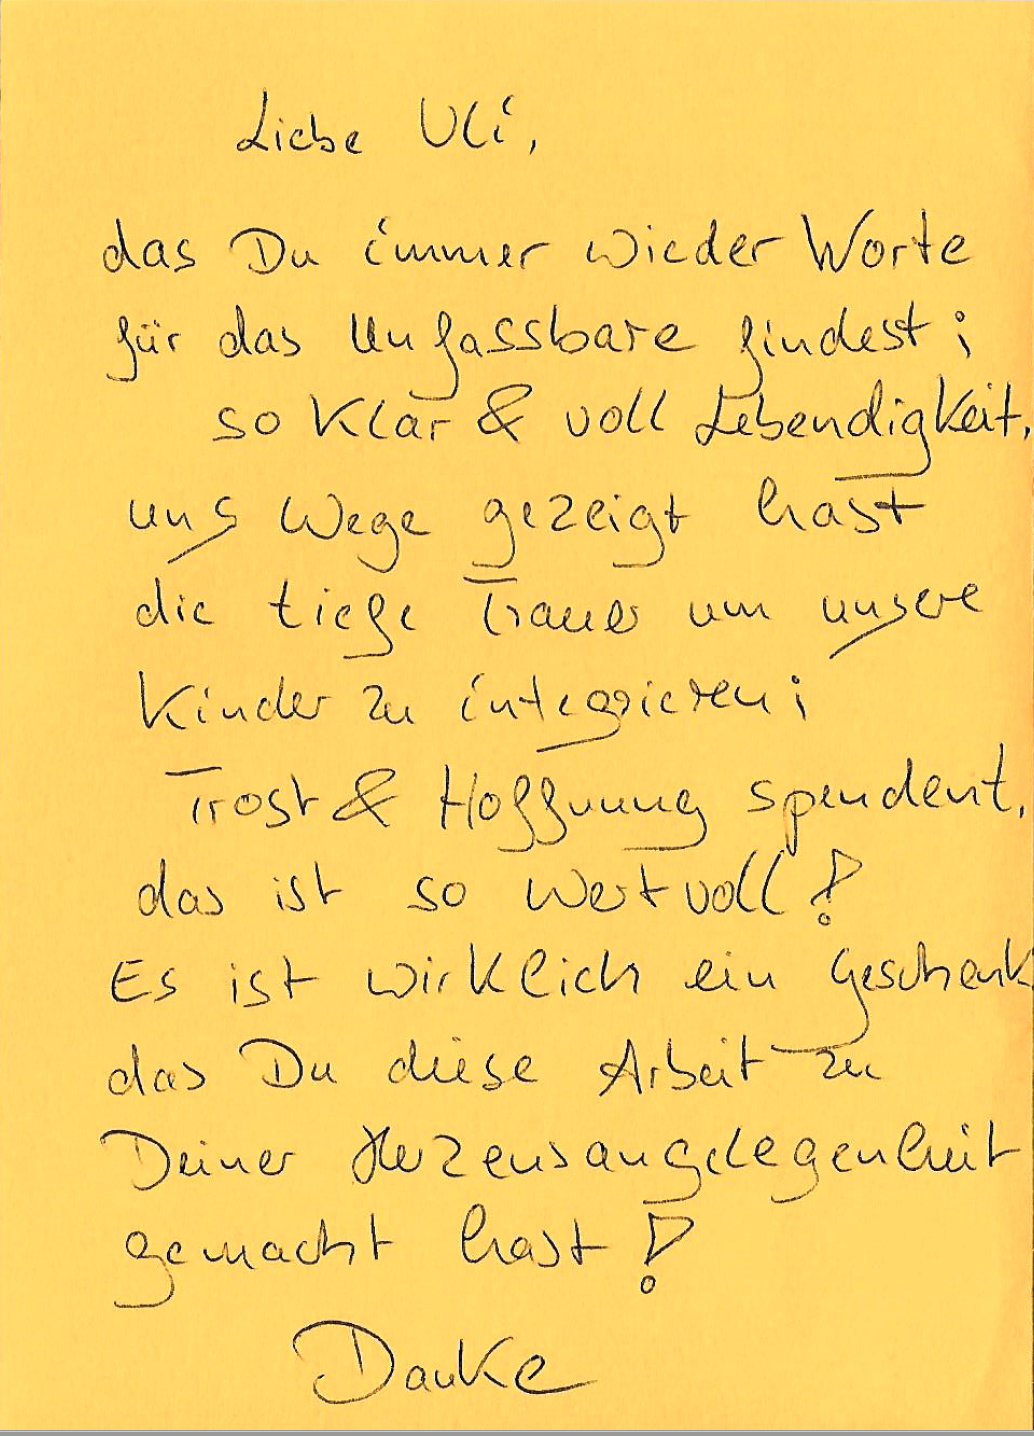 Liebe Uli,
das Du immer wieder Worte
für das Unfassbare findest;
so Klar & voll Lebendigkeit,
uns Wege gezeigt hast
die tiefe Trauer um unsere
Kinder zu integrieren;
Trost & Hoffnung spendent,
das ist so Wertvoll!
Es ist wirklich ein Geschenk
das Du diese Arbeit zu
Deiner Herzensangelegenheit
gemacht hast!
Danke